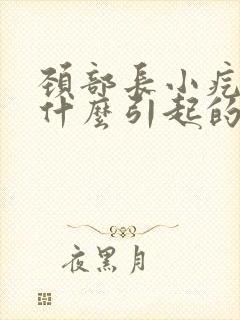 頸部長小疙
什麼引起的
夜黑月